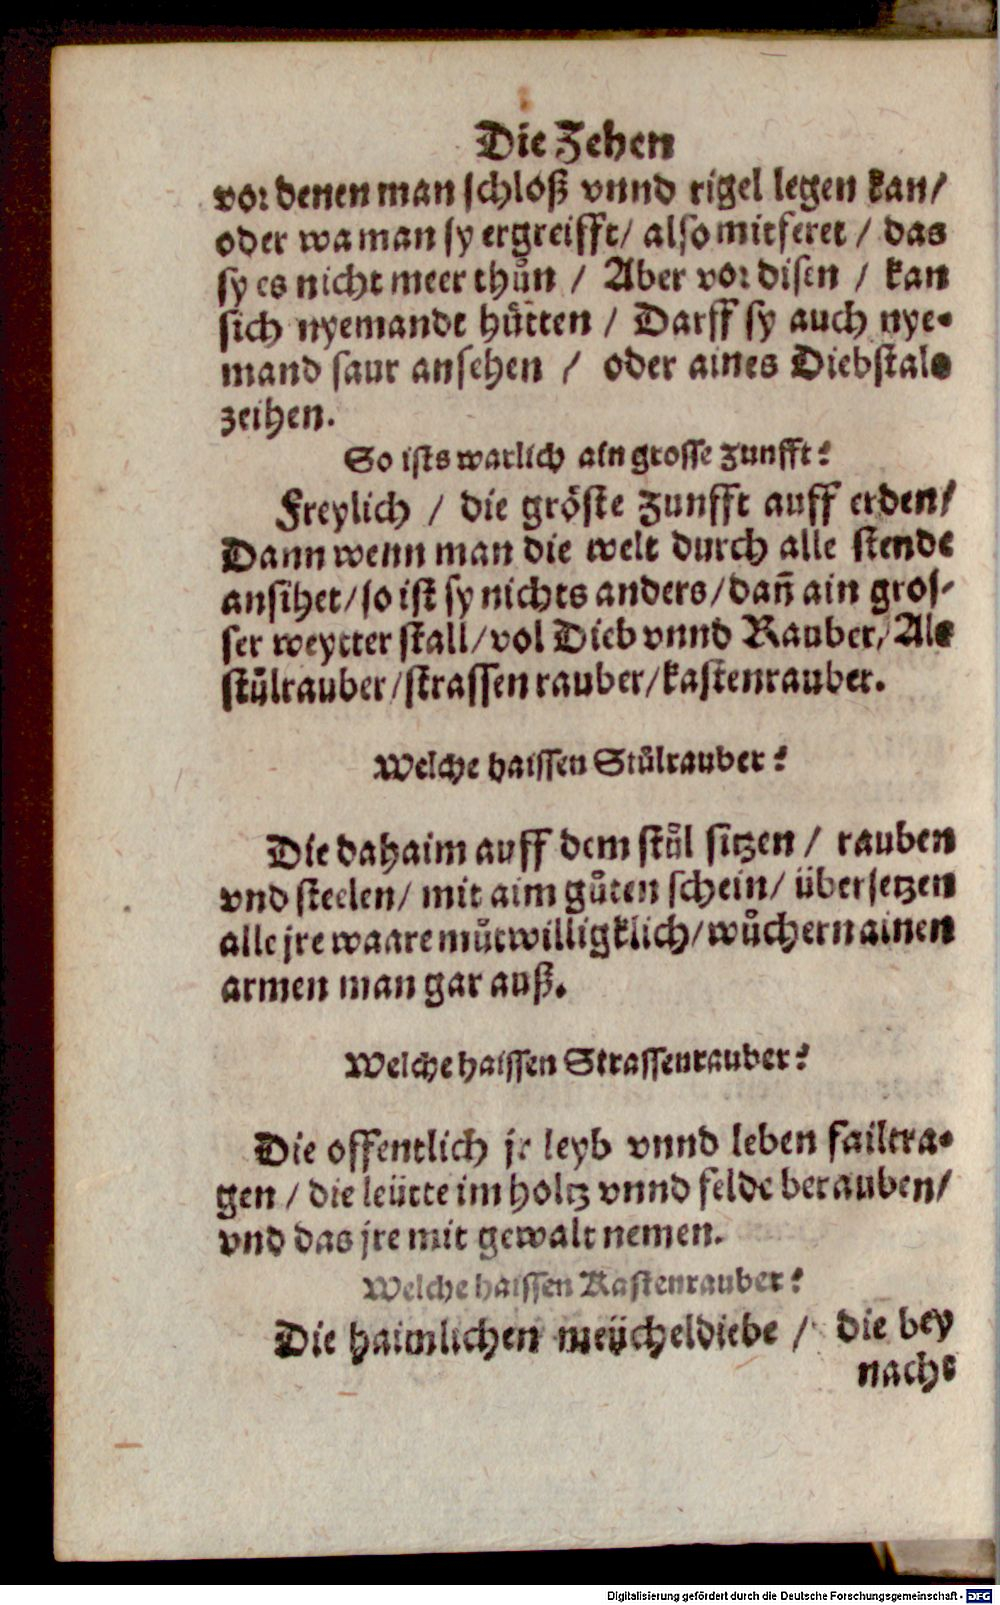 Die Zehen
vor denen man schloß vnnd rigel legen kan/
oder wa man sy ergreifft/ also mitferet / das
sy es nicht meer thůn / Aber vor disen / kan
sich nyemandt hütten / Darff sy auch nye-
mand saur ansehen / oder aines Diebstals
zeihen.
So ists warlich ain grosse zunfft?
Freylich / die gröste zunfft auff erden/
Dann wenn man die welt durch alle stende
ansihet/so ist sy nichts anders/dañ ain gros-
ser weytter stall/vol Dieb vnnd Rauber/Als
stůlrauber/strassenrauber/kastenrauber.
Welche haissen Stůlrauber?
Die dahaim auff dem stůl sitzen / rauben
vnd steelen/ mit aim gůten schein/ übersetzen
alle jre waare můtwilligklich/wůchern ainen
armen man gar auß.
Welche haissen Strassenrauber?
Die offentlich jr leyb vnnd leben failtra-
gen / die leütte im holtz vnnd felde berauben/
vnd das jre mit gewalt nemen.
Welche haissen Kastenrauber?
Die haimlichen meücheldiebe / die bey
nacht
Digitalisierung gefördert durch die Deutsche Forschungsgemeinschaft - DFG